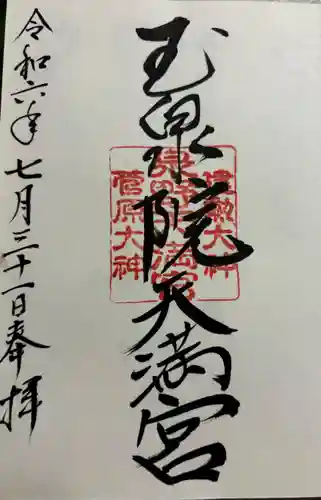 玉泉院天満宮
建勲大神
菅原大神
令和六年七月三十一日奉拝